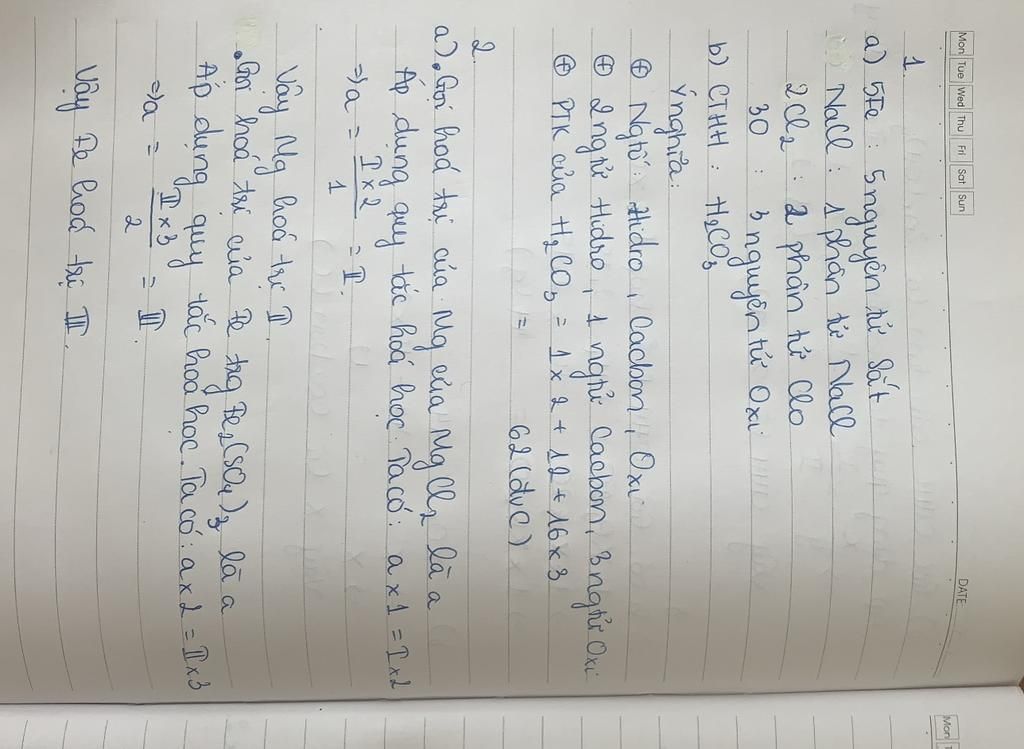 Mon Tue Wed Thu Fri Sat Sun
DATE
1.
a) 5Fe : 5 nguyên tử Sắt
NaCl : 1 phân tử NaCl
2Cl₂ : 2 phân tử Clo
3O : 3 nguyên tử Oxi
b) CTHH : H₂CO₃
Ý nghĩa:
⊕ Ngtố: Hidro, Cacbon, Oxi
⊕ 2 ngtử Hidro, 1 ngtử Cacbon, 3 ngtử Oxi
⊕ PTK của H₂CO₃ = 1 x 2 + 12 + 16 x 3
= 62 (đvC)
2
a). Gọi hoá trị của Mg của MgCl₂ là a
Áp dụng quy tắc hoá học. Ta có: a x 1 = I x 2
=> a = I x 2 / 1 = II.
Vậy Mg hoá trị II
. Gọi hoá trị của Fe trg Fe₂(SO₄)₃ là a
Áp dụng quy tắc hoá học. Ta có: a x 2 = II x 3
=> a = II x 3 / 2 = III
Vậy Fe hoá trị III.
Mon